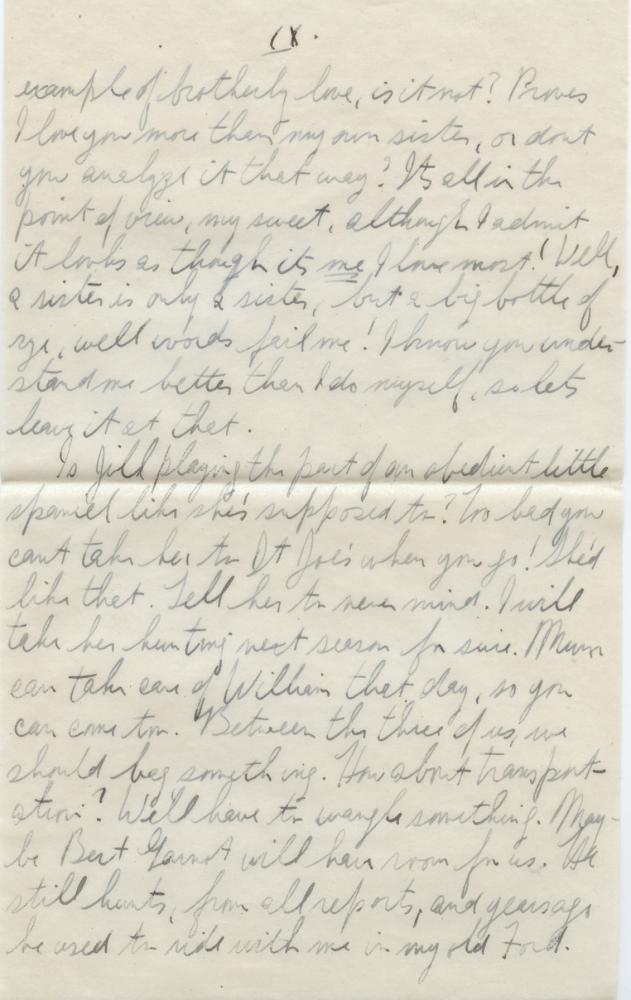 IX.
example of brotherly love, is it not? Proves
I love you more than my own sister, or dont
you analyze it that way? Its all in the
point of view, my sweet, although I admit
it looks as though its me I love most! Well,
a sister is only a sister, but a big bottle of
rye, well words fail me! I know you under-
stand me better than I do myself, so lets
leave it at that.
Is Jill playing the part of an obedient little
spaniel like she's supposed to? Too bad you
cant take her to St Joe's when you go! She'd
like that. Tell her to never mind. I will
take her hunting next season for sure. Mum
can take care of William that day, so you
can come too. Between the three of us, we
should bag something. How about transport-
ation? We'll have to wangle something. May-
be Bert will have room for us. He
still hunts, from all reports, and years ago
he used to ride with me in my old Ford.